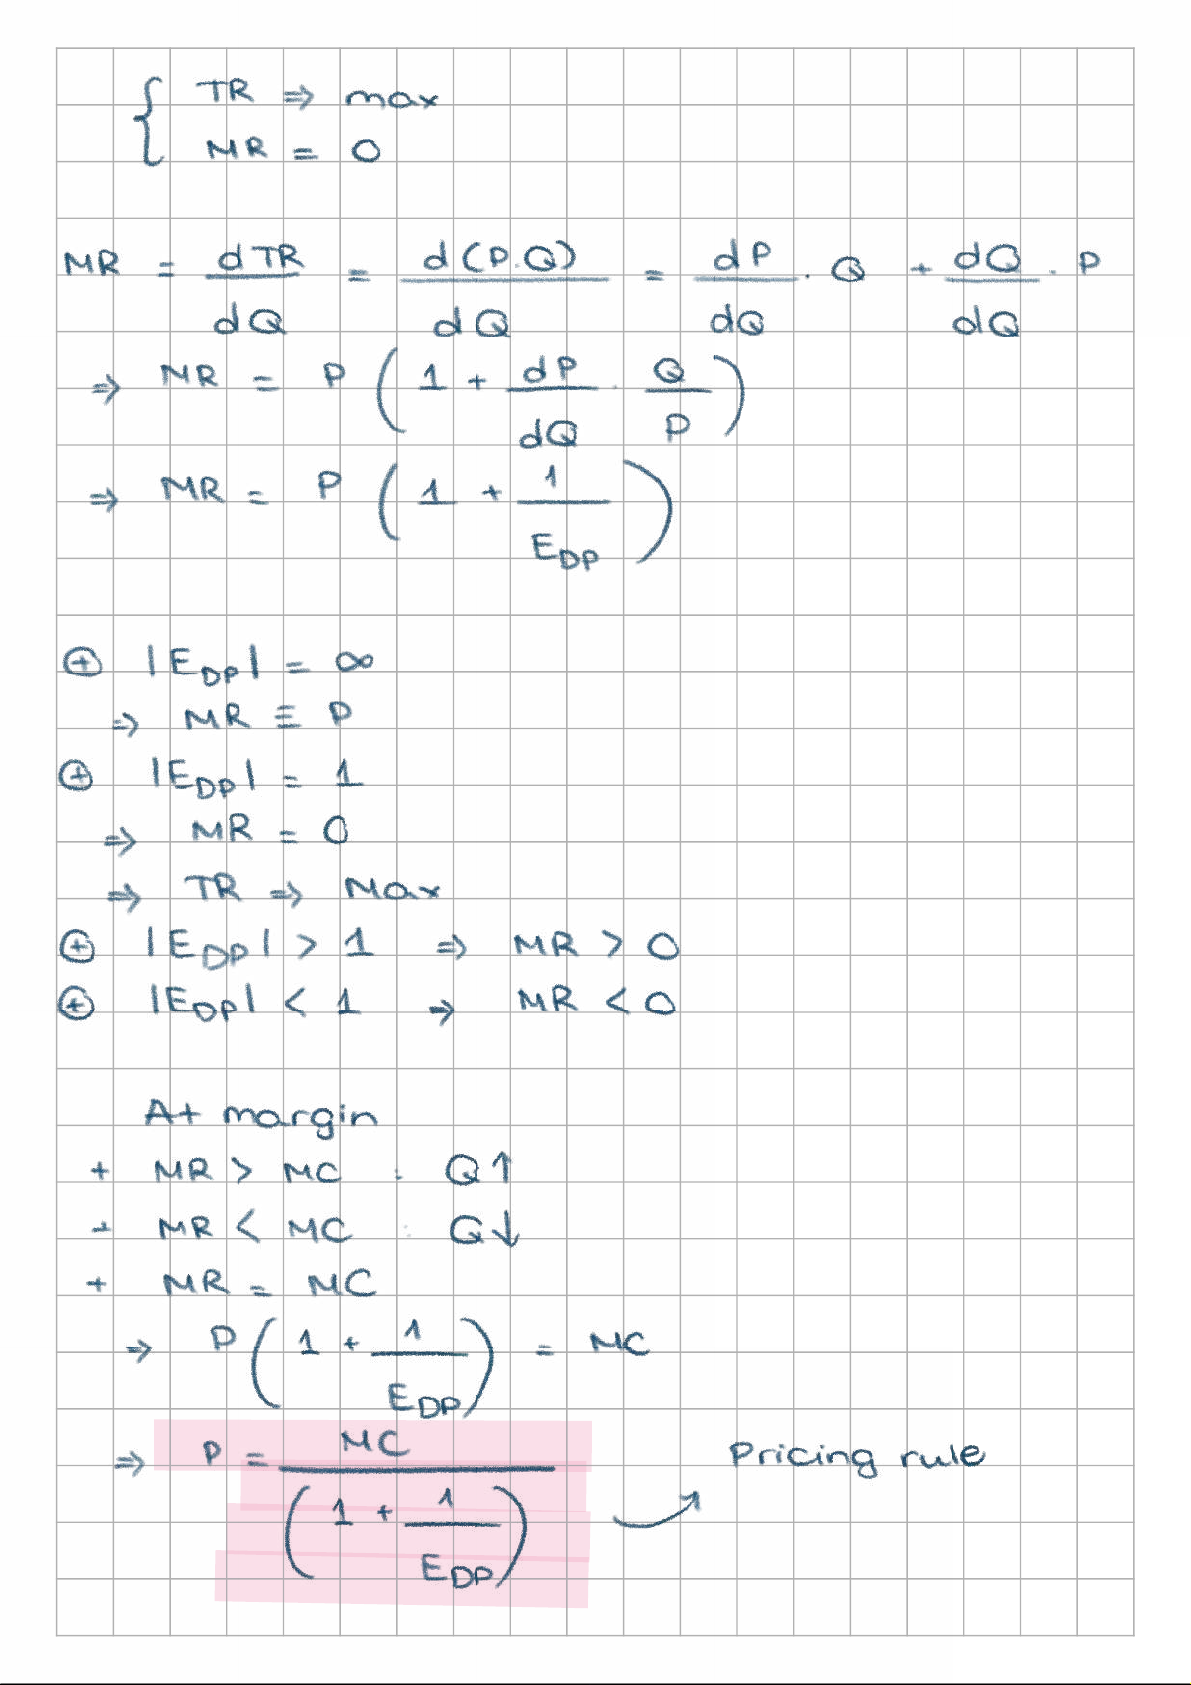 { TR ⇒ max
MR = 0
MR = dTR/dQ = d(P.Q)/dQ = dP/dQ . Q + dQ/dQ . P
⇒ MR = P (1 + dP/dQ . Q/P)
⇒ MR = P (1 + 1/E_DP)
⊕ |E_DP| = ∞
⇒ MR ≡ P
⊕ |E_DP| = 1
⇒ MR = 0
⇒ TR ⇒ Max
⊕ |E_DP| > 1 ⇒ MR > 0
⊕ |E_DP| < 1 ⇒ MR < 0
At margin
+ MR > MC : Q↑
+ MR < MC : Q↓
+ MR = MC
⇒ P (1 + 1/E_DP) = MC
⇒ P = MC/(1 + 1/E_DP) Pricing rule